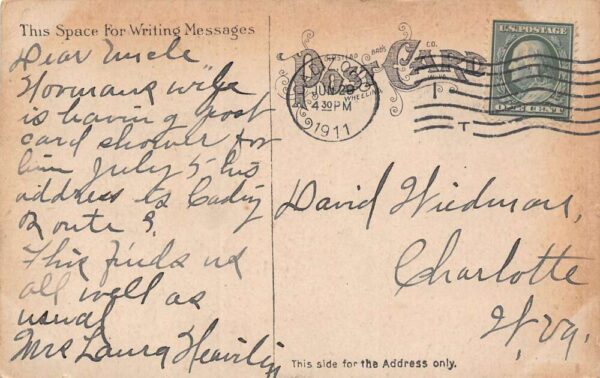 This Space For Writing Messages
Dear Uncle
Normans wife
is having a post
card shower for
him July 5 his
address is Cadiz
Route 9.
This finds us
all well as
usual
Mrs Laura Heavilin
POST CARD
JUN 29
4 30 PM
1911
WHEELING
U.S. POSTAGE
ONE CENT
David Wiedman,
Charlotte
W, Va.
This side for the Address only.